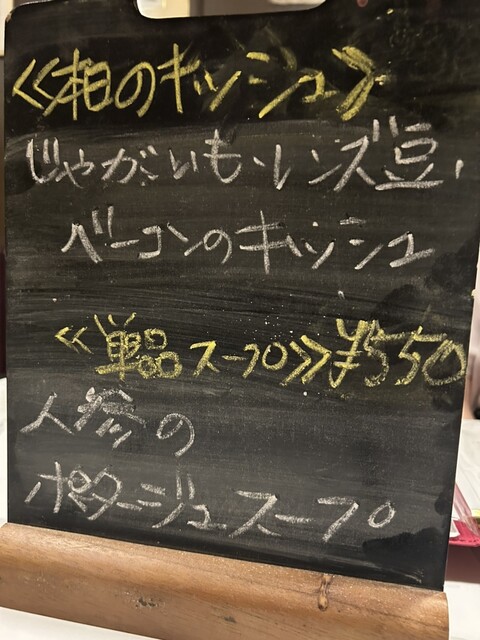 ≪本日のキッシュ≫
じゃがいも・レンズ豆・
ベーコンのキッシュ
≪単品スープ≫¥550
人参の
ポタージュスープ